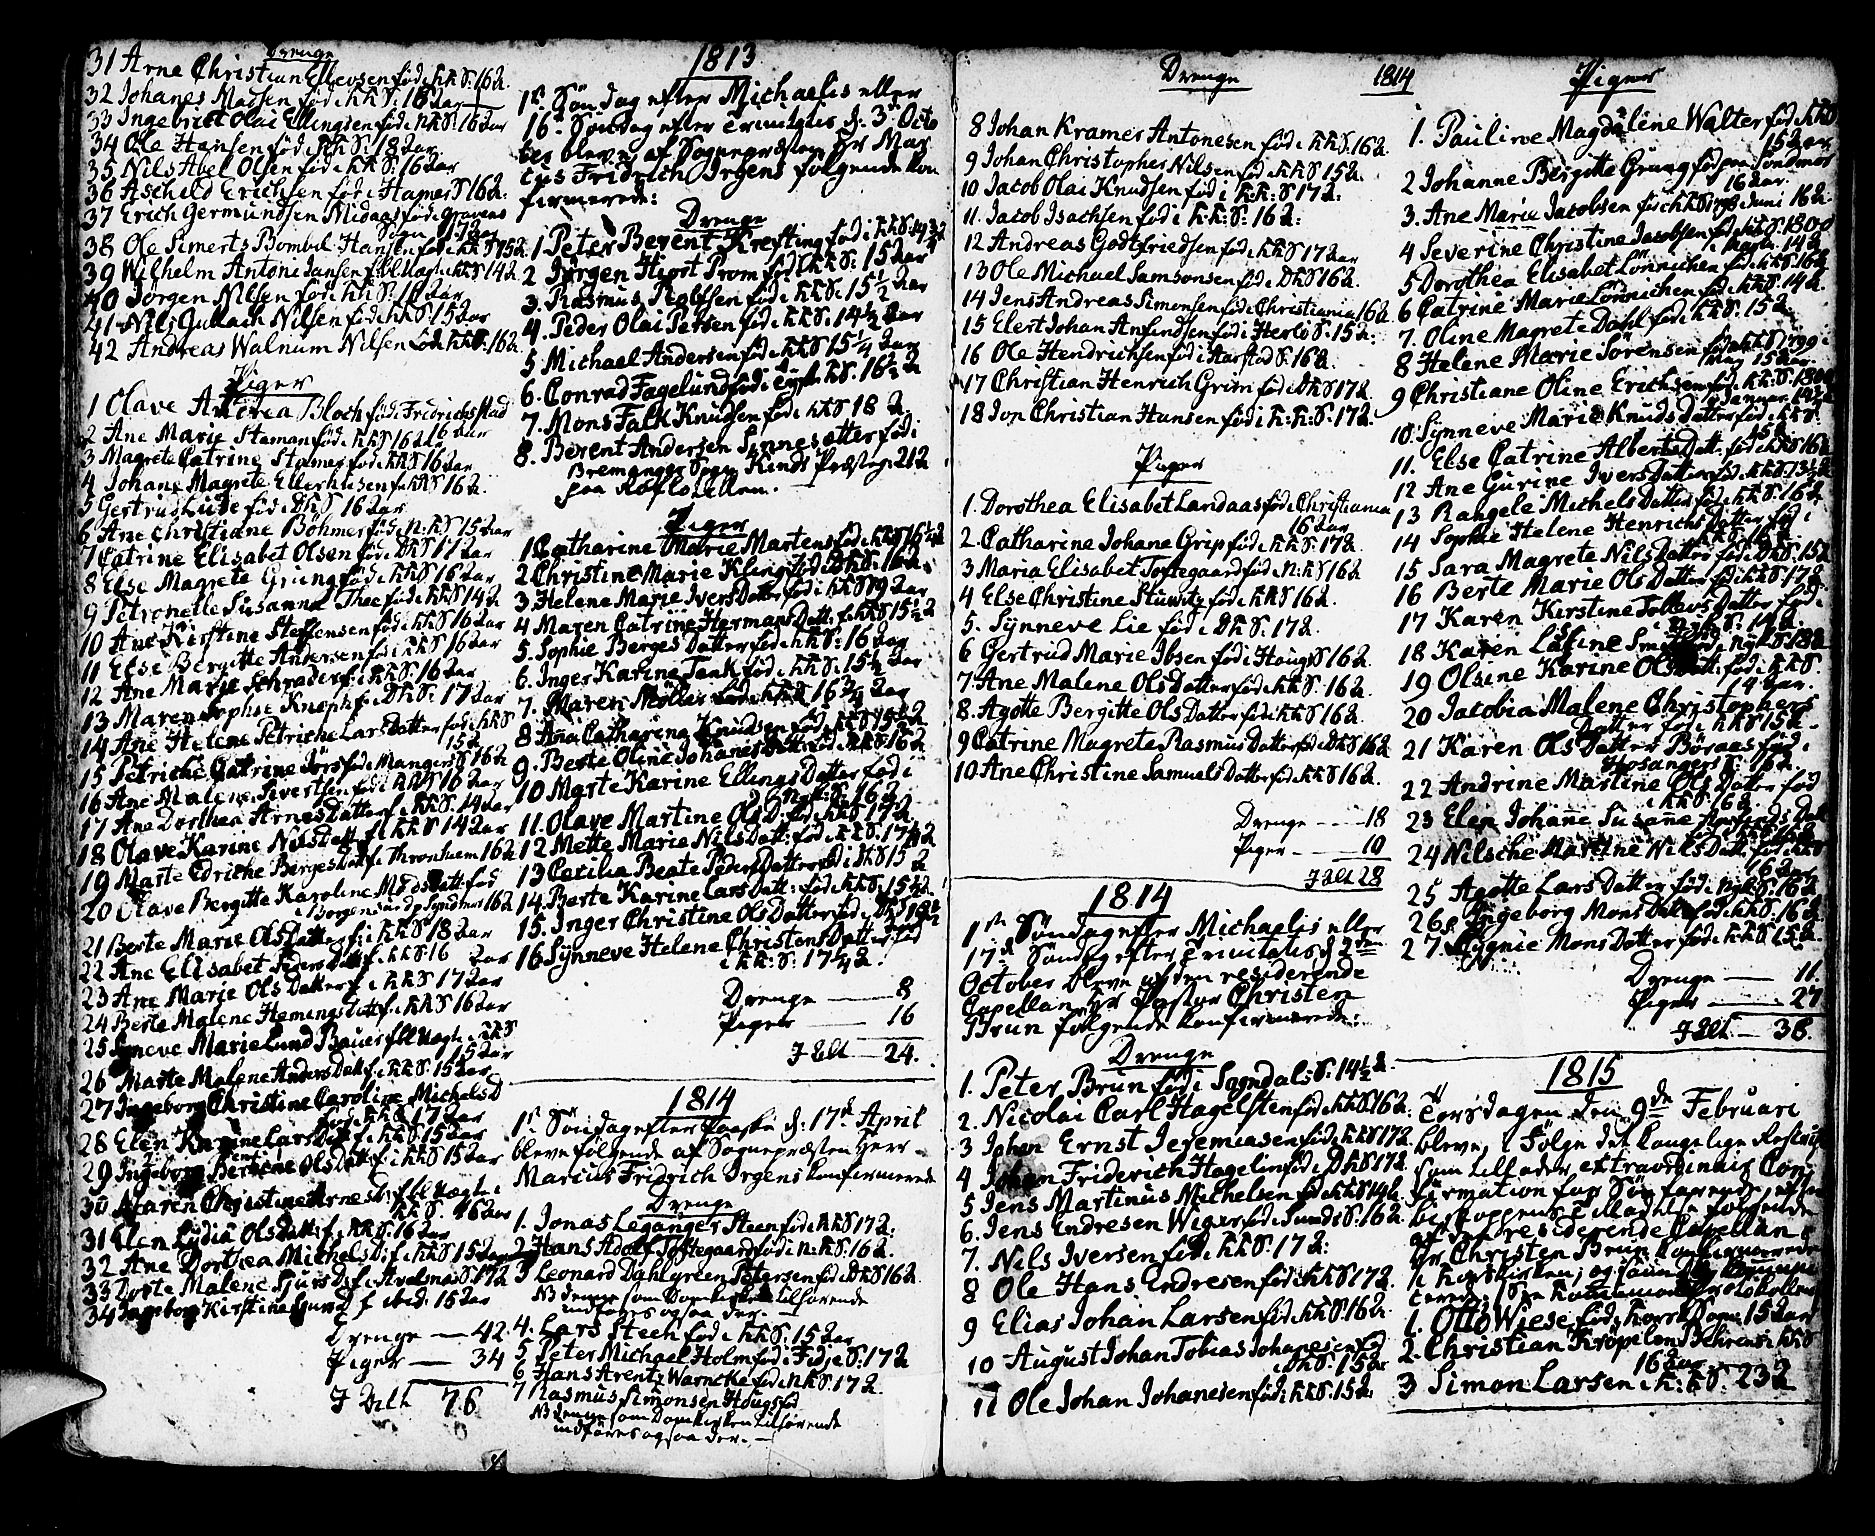 Drenge
31 Arne Christian Ellevsen fød i KKS. 16 2.
32 Johanes Madsen fød i KKS: 16 aar
33 Ingebrict Olai Ellingsen fød i NKS. 16 aar
34 Ole Hansen fød i KKS 18 aar
35 Nils Abel Olsen fød i KKS. 16 aar
36 Ascheld Erichsen fød i Hammer S 16 2.
37 Erich Germundsen Midaas fød i Gravens
Sogn 17 2ar
38 Ole Simerts Bombel Hansen fød i KKS 15 2.
39 Wilhelm Antoni Jansen f KKS 14 2
40 Jörgen Nilsen fød i KKS: 16 2ar
41 Nils Gullach Nilsen fød i KKS 15 2ar
42 Andreas Walnum Nilsen fød i KKS. 16 2
Piger
1 Olave Andrea Bloch fød i Fridrichstad
16 2ar
2 Ane Marie Staman fød i KKS 16 2
3 Magrete Catrine Stamer fød i KKS 16 2ar
4 Johane Magrete Ellerhusen f KKS 16 2.
5 Gertrud Lude fød i DKS 16 2ar
6 Ane Christiane Böhmer fød i N: KS 15 2ar
7 Catrine Elisabet Olsen fød i DKS 17 2ar
8 Else Magrete Grung fød i KKS 16 2ar
9 Petronelle Susanna Thee fød i KKS 14 2
10 Ane Kirstine Steffensen fød i KKS 16 2ar
11 Else Bergitte Andersen fød i KKS 16 2ar
12 Ane Marie Schrader f i KKS. 16 2ar
13 Maren Sophie Knoph f i DKS. 17 2ar
14 Ane Helene Petriche Lars Datter fød i KKS
15 2.
15 Petriche Catrine Jörs fød i Mangers S 16 2
16 Ane Malene Sivertsen fød i KKS 16 2ar
17 Ane Dorthea Arnes Datter f i KKS. 14 2ar
18 Olave Karine Nils Datt. f i KKS 14 2ar
19 Marte Edriche Berges Datt f i Thronhiem 16 2
20 Olave Bergitte Karoline Mads Datt fød
i Borgen Sundmør 16 2
21 Berte Marie Ols Datter f i KKS 18 2ar
22 Ane Elisabet Peders Datt f. i KKS 16 2ar
23 Ane Marie Ols Datter f i KKS 17 2ar
24 Berte Malene Hemings Datt f i KKS 16 2ar
25 Syneve Marie Lund Bauer f i KKS
15 2ar
26 Marte Malene Anders Datt f i KKS. 15 2ar
27 Ingeborg Christine Caroline Michels D
fød i KKS 17 2ar
28 Elen Karine Lars Datt f. i KKS 15 2ar
29 Ingeborg Bertine Ols Datt f i KKS 15 2ar
30 Maren Christine Arnes D. f
KKS. 16 2ar
31 Elen Lydia Ols Datt: f i KKS. 16 2ar
32 Ane Dorthea Michels D: f i KKS 15 2ar
33 Dorte Malene Sjurs D f i Avaldsnæs S 17 2
34 Ingeborg Kirstine D f ibid. 15 2ar
Drenge — 42
Piger — 34
I Alt 76
1813
1st. Søndag efter Michaelis eller
16de Søndag efter Trinitatis d. 3de Octo
ber bleve af Sognepræsten Hr Mar
cus Fridrich Irgens følgende kon
firmerede:
Drenge
1 Peter Berent Krefting fød i KKS. 14 3/4 2
2 Jörgen Hiort Prom fød i KKS: 15 2ar
3. Rasmus Rolfsen fød i KKS. 15 1/2 2ar
4. Peder Olai Petersen fød i KKS. 14 1/2 2ar
5 Michael Andersen fød i KKS 15 1/4 2ar
6. Conrad Fagelund fød i KS. 16 1/2 2
7. Mons Falk Knudsen fød i KKS 18 2.
8. Berent Andersen Sinnesætter fød i
Bremanger Sogn Kinds Præsteg. 21 2
paa
Piger
1 Catharine Marie Martens fød i KKS 16 1/4 2
2 Christine Marie Kling fød i DKS: 16 2.
3 Helene Marie Ivers Datter fød i KKS 19 2ar
4 Maren Catrine Hermans Datt. f. KKS 15 1/2 2
5. Sophie Berges Datter fød i KKS: 16 2ar
6. Inger Karine Tank fød i KKS. 15 1/2 2ar
7. Maren Möller fød i KKS 16 3/4 2ar
8 Ana Catharina Knudsen fød i KKS 15 1/2 2
9. Berte Oline Johanes Datter fød i KKS 16 2
10 Marte Karine Ellings Datter fød i
Nyk: S. 16 2
11. Olave Martine Ols D. fød i KKS 17 1/2 2
12 Mette Marie Nils Datt: fød i KKS. 17 1/2 2
13 Cecilia Beate Peders Datter fød i DKS 15 2
14. Berte Karine Lars Datt: fød i KKS. 15 1/2 2
15. Inger Christine Ols Datter fød i DKS 18 2
16. Synneve Helene Christens Datter fød
i KK: S: 17 1/2 2.
Drenge — 8
Piger — 16
I Alt — 24.
1814
1st Søndag efter Paaske d: 17de April
bleve følgende af Sognepræsten Herr
Marcus Fridrich Irgens konfirmerede
Drenge
1. Jonas Leganger Steen fød i KKS 17 2:
2. Hans Adolf Toftegaard fød i N: KS. 16 2.
3 Leonard Dahlgreen Petersen fød i DKS 16 2.
NB denne som Domkirken tilhørende
indføres ogsaa der.
4. Lars Steen fød i KKS. 15 2ar
5 Peter Michael Holm fød i Fedje S: 17 2
6 Hans Arentz Warncke fød i NKS. 17 2.
7 Rasmus Simonsen Hougsfød
NB denne som Domkirken tilhørende
indføres ogsaa der. —
Drenge
1814
8 Johan Kramer Antonesen fød i KKS. 16 2
9 Johan Christopher Nilsen fød i KKS. 15 2.
10 Jacob Olai Knudsen fød i KK: S 17 2.
11. Jacob Isachsen fød i KK: S. 16 2:
12 Andreas Godtfriedsen fød i KKS 17 2ar
13 Ole Michael Samsonsen fød i DKS 16 2.
14 Jens Andreas Simonsen fød i Christiania 16 2
15 Elert Johan Anfindsen fød i Herlø S. 15 2:
16 Ole Hendrichsen fød i Aarstad S. 16 2.
17 Christian Henrich Grim fød i DKS 17 2.
18 Jon Christian Hansen fød i K: K: S. 17 2.
Piger
1. Dorothea Elisabet Landaas fød i Christiania
16 2ar
2. Catharine Johane Grip fød i KKS. 17 2.
3 Maria Elisabet Toftegaard fød i N: K S 16 2
4 Else Christine Stüwitz fød i KKS 16 2.
5. Synneve Lie fød i DKS. 17 2.
6 Gertrud Marie Ibsen fød i Hougs S 16 2.
7. Ane Malene Ols Datter fød i KKS. 16 2.
8. Agotte Bergitte Ols Datter fød i KKS 16 2.
9 Catrine Magrete Rasmus Datter fød i DKS 16 2
10. Ane Christine Samuels Datter fød i KKS 16 2.
Drenge — 18
Piger — 10
I Alt 28
1814
1ste Søndag efter Michaelis eller
17de Søndag efter Trinitatis d 2den
October bleve af den residerende
Capellan Hr Pastor Christen
Brun følgende konfirmerede:
Drenge
1. Peter Brun fød i Sogndals S. 14 1/2 2.
2. Nicolai Carl Hagelsten fød i KKS 16 2.
3 Johan Ernst Jeremiasen fød i KKS 17 2.
4 Johan Friderich Hagelin fød i DKS 17 2.
5 Jens Martinus Michelsen fød i KKS 14 2
6. Jens Endresen Wiger fød i Sund S: 16 2
7. Nils Iversen fød i KKS. 17 2:
8 Ole Hans Endresen fød i KKS 17 2.
9 Elias Johan Larsen fød i KKS 16 2.
10 August Johan Tobias Johanesen fød
i DKS: 15 2ar
11 Ole Johan Johanesen fød i KKS. 15 2:
Piger
1. Pauline Magdalene Walter fød i KKS
15 2ar
2 Johanne Bergitte Grung fød paa Søndmør
16 2ar
3. Ane Marie Jacobsen fød i KKS 1798 i Juni 16 2.
4 Severine Christine Jacobsen fød i KKS. 1800
i Marts. 14 2
5 Dorothea Elisabet Lönnichen fød i KKS. 16 2
6 Catrine Marie Lönnichen fød i KKS. 14 2.
7. Oline Magrete Dahl fød i KKS. 15 2
8 Helene Marie Sörensen fød i KKS 1799 i
Mai 15 2ar
9 Christiane Oline Erichsen fød i KK: S. 1800
i Januar 14 2
10. Synneve Marie Knuds Datter fød i KKS.
15 2.
11. Else Catrine Alberts Datt. fød i KKS 16 2
12 Ane Gurine Ivers Datter fød i KKS. 13 1/2 2
13 Rangele Michels Datter fød i KKS. 16 2
14 Sophie Helene Henrichs Datter fød i
KKS. 16 2.
15 Sara Magrete Nils Datter fød i DKS. 15 2
16 Berte Marie Ols Datter fød i KKS 17 2.
17 Karen Kirstine Tollevs Datter fød i
NykS. 14 2
18 Karen Lasine fød i NykS 18 2
19 Olsine Karine Ols Datt. fød i KKS
14 2ar
20 Jacobia Malene Christophers
Datter fød i KKS 15 2
21 Karen Ols Datter Böraas fød i
Hosangers K. 16 2.
22 Andrine Martine Ols Datter fød
i KKS. 16 2.
23 Elen Johane Susane Datt
fød i KKS 16 2
24 Nilsche Martine Nils Datt fød i KKS
16 2ar
25 Agotte Lars Datter fød i NykS. 16 2
26 Ingeborg Mons Datt fød i KKS. 16 2
27. Sygnie Mons Datter fød i KKS. 15 2.
Drenge — 11.
Piger — 27
I Alt — 38.
1815
Torsdagen den 9de Februari
bleve, i Følge det kongelige Rescript
som tillader extraordinair Con-
firmation for Søefarende, efter
biskoppens Tilladelse følgende
af den residerende Capellan
Hr Christen Brun konfirmerede
i Korskirken,
1. Otto Wiese fød i Kors Sogn. 15 2ar
2. Christian Kröpelin Behrens i KKS
16 2ar
3 Simon Larsen i K: KS. 23 2